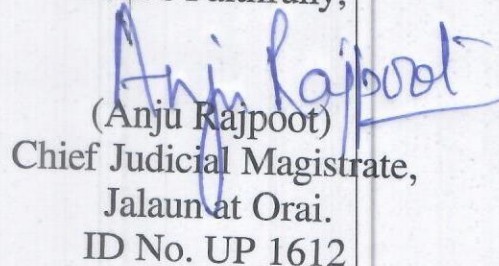 Faithfully,
Anju Rajpoot
(Anju Rajpoot)
Chief Judicial Magistrate,
Jalaun at Orai.
ID No. UP 1612